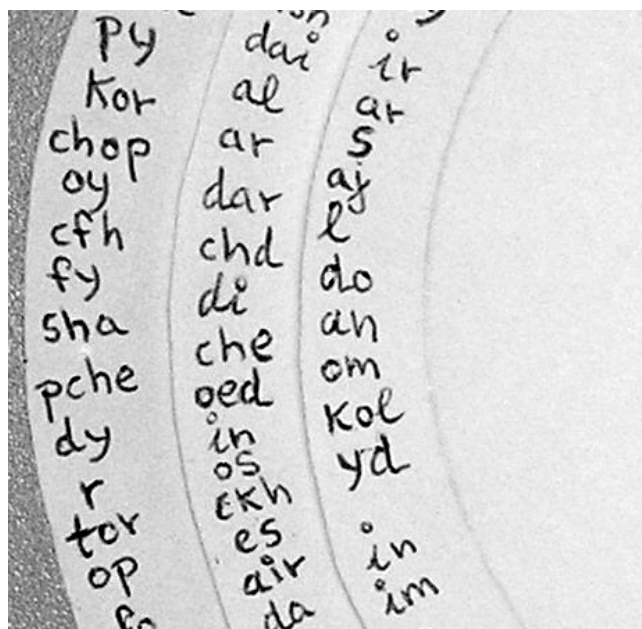 py
kor
chop
oy
cfh
fy
sha
pche
dy
r
tor
op
dai
al
ar
dar
chd
di
che
oed
in
os
ckh
es
air
da
ir
ar
s
aj
l
do
an
om
kol
yd
in
im